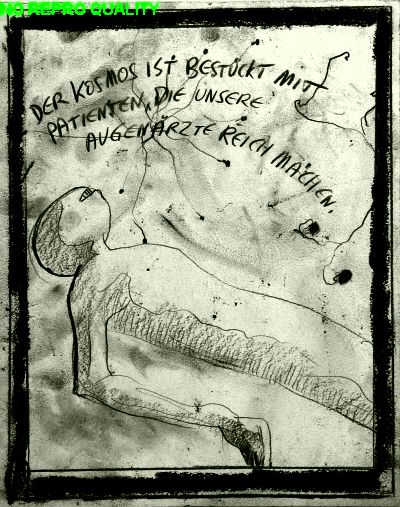 NO REPRO QUALITY
DER KOSMOS IST BESTÜCKT MIT
PATIENTEN, DIE UNSERE
AUGENÄRZTE REICH MACHEN.